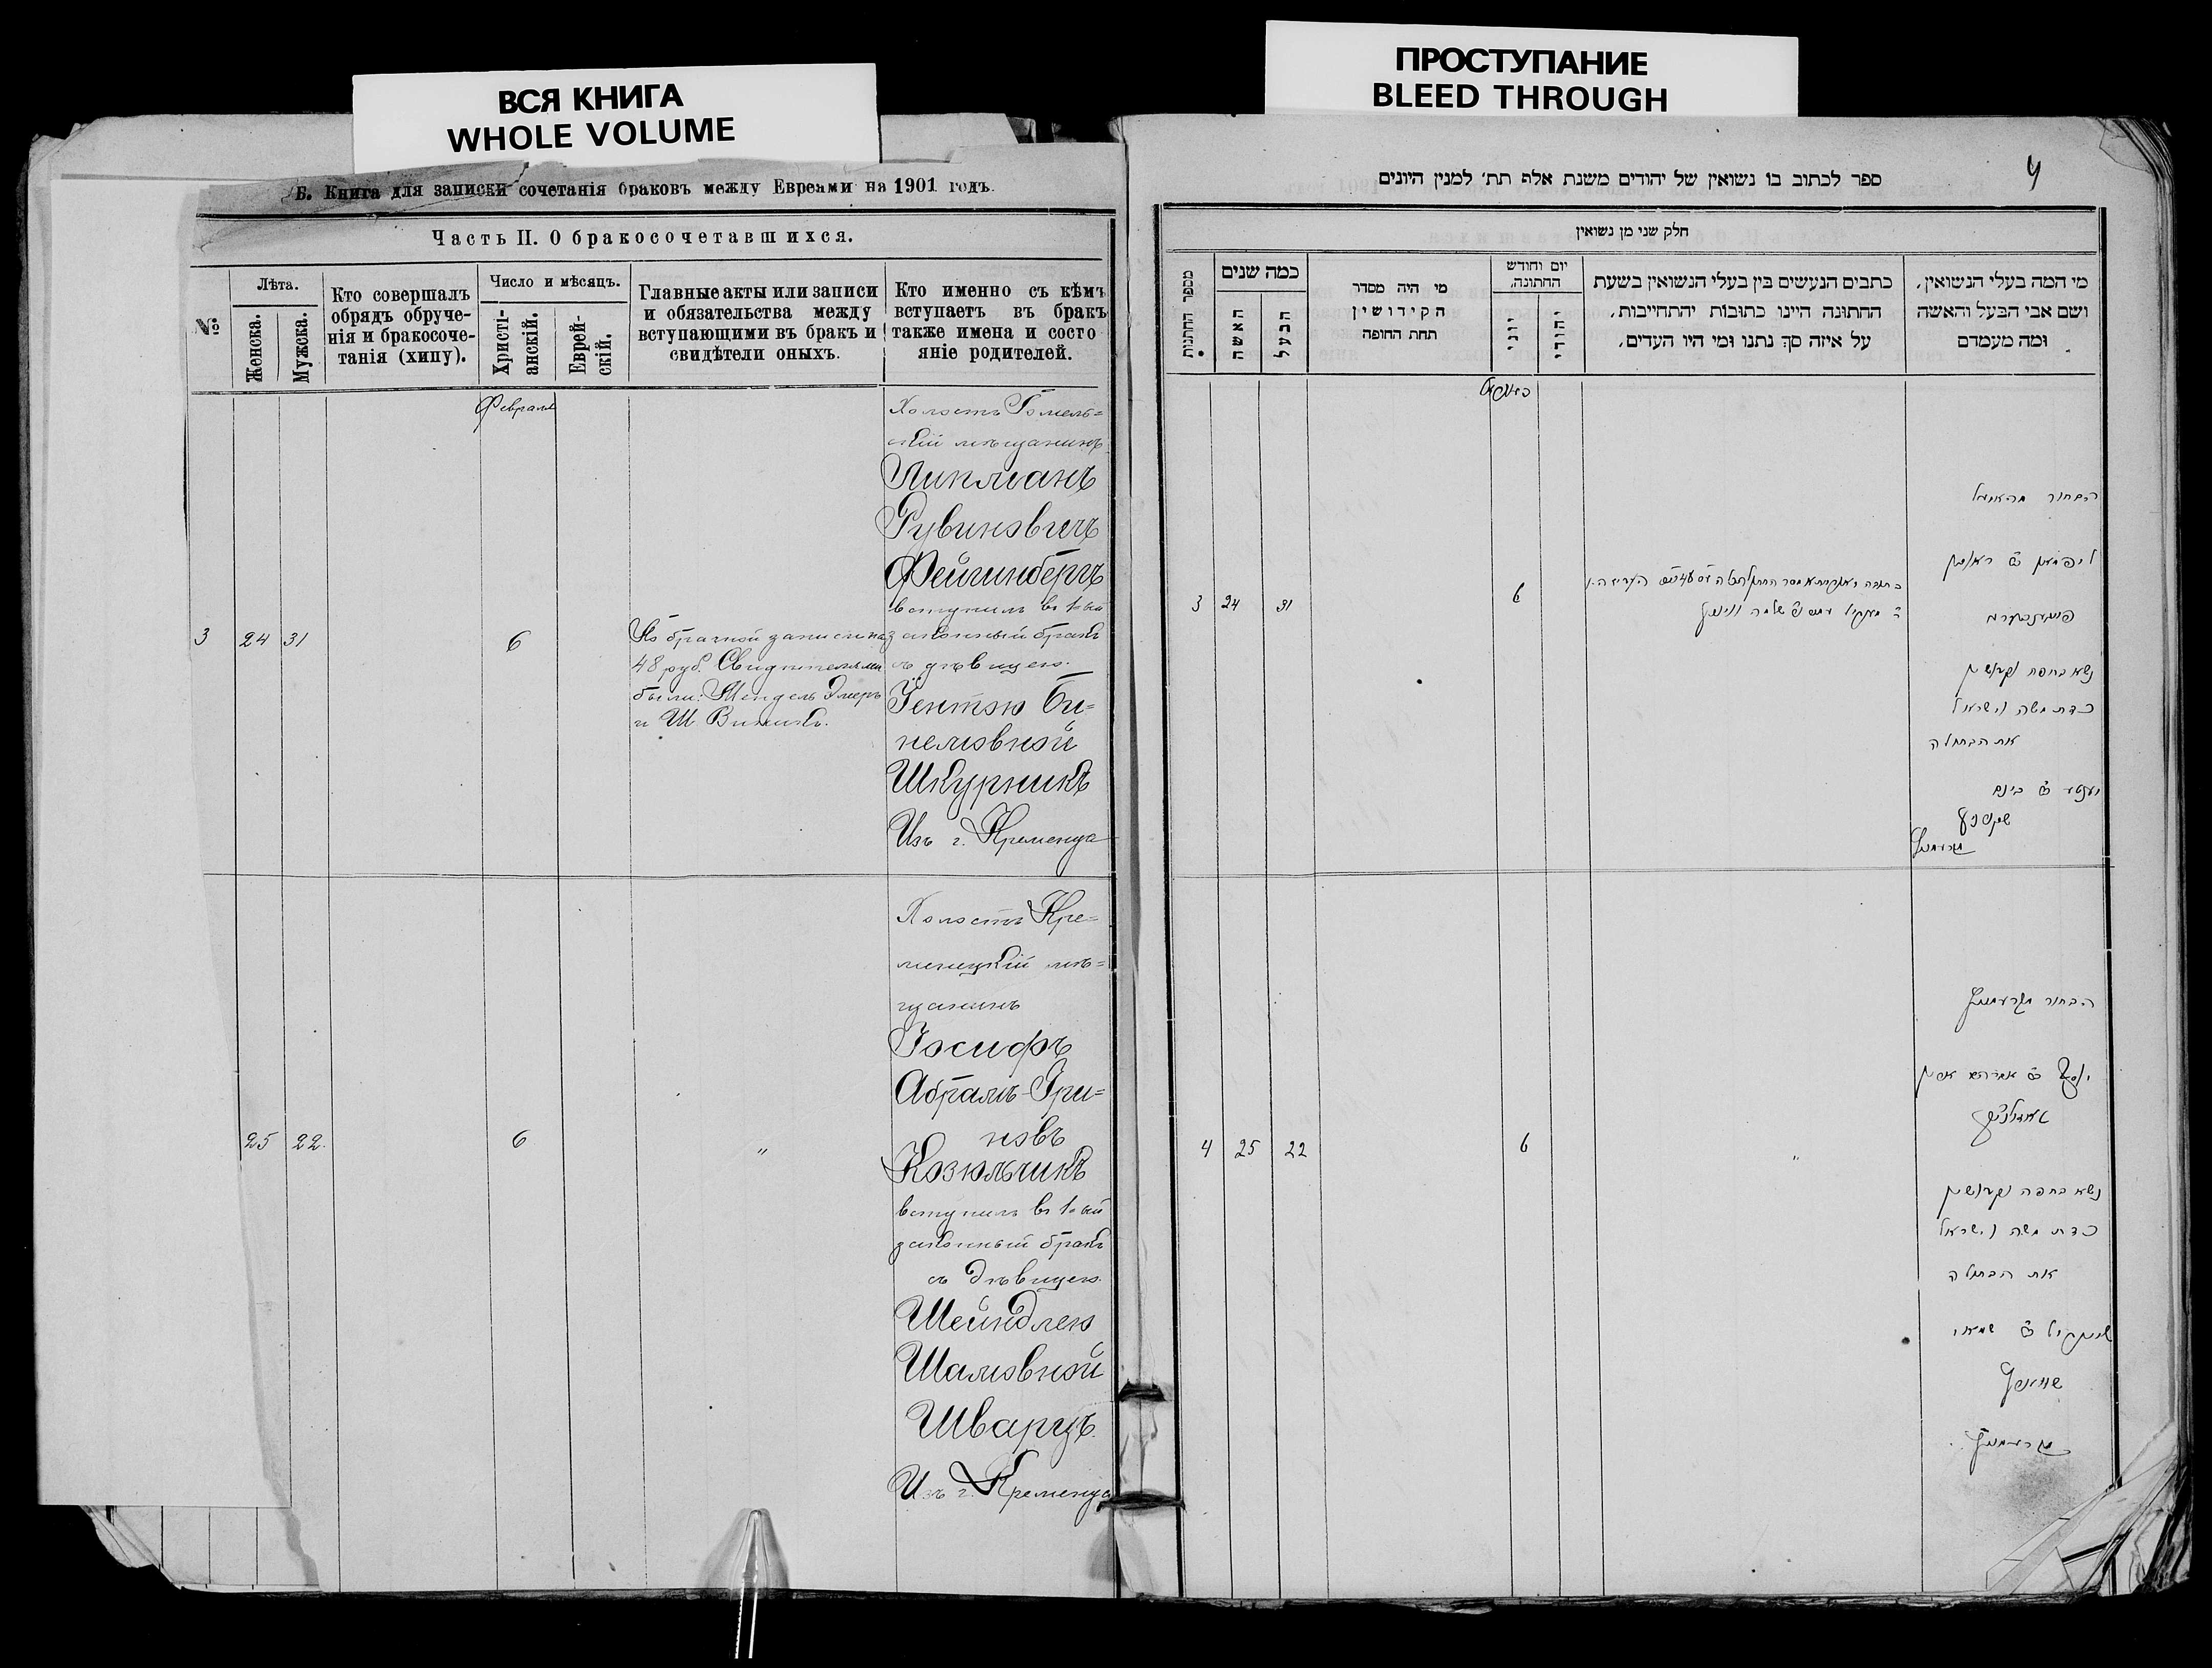 ВСЯ КНИГА
WHOLE VOLUME
ПРОСТУПАНИЕ
BLEED THROUGH
Б. Книга для записки сочетанія браковъ между Евреами на 1901 годъ.
Часть II. О бракосочетавшихся.
№
Лѣта.
Женска.
Мужска.
Кто совершалъ
обрядъ обруче-
нія и бракосоче-
танія (хипу).
Число и мѣсяцъ.
Христі-
анскій.
Еврей-
скій.
Главные акты или записи
и обязательства между
вступающими въ бракъ и
свидѣтели оныхъ.
Кто именно съ кѣмъ
вступаетъ въ бракъ
также имена и состо
яніе родителей.
Февраля
3
24
31
6
По брачной записи на
48 руб. Свидѣтелями
были: Мендель Эмеръ
и Ш.
Холостъ Гомель=
скій мѣщанинъ
Липманъ
Рувиновичъ
Фейгинбергъ
вступилъ въ 1-ый
законный бракъ
съ дѣвицею
Іентою Би=
немовной
Шкурникъ
Изъ г. Кременца
25
22.
6
"
Холостъ Кре=
менецкій мѣ=
щанинъ
Іосифъ
Абрамъ-Ори=
новъ
Козюльчикъ
вступилъ въ 1-ый
законный бракъ
съ Дѣвицею
Шейндлею
Шамовной
Шварцъ.
Изъ г. Кременца
4
ספר לכתוב בו נשואין של יהודים משנת אלף תת׳ למנין היונים
חלק שני מן נשואין
מספר החתונות
כמה שנים
האשה
הבעל
מי היה מסדר
הקידושין
תחת החופה
יום וחודש
החתונה.
יוני
יהודי
כתבים הנעשים בין בעלי הנשואין בשעת
החתונה היינו כתובות יהתחייבות,
על איזה סך נתנו ומי היו העדים,
מי המה בעלי הנשואין,
ושם אבי הבעל והאשה
ומה מעמדם
3
24
31
6
הבחור מהאמעל
ליפמאן ב"ר ראובן
נשא בחופה וקדושין
כדת משה וישראל
את הבתולה
יענטע ב"ר בינם
4
25
22
6
"
הבחור מקרעמניץ
נשא בחופה וקדושין
כדת משה וישראל
את הבתולה
שיינדיל ב"ר שמאי
שווארץ
מקרעמניץ